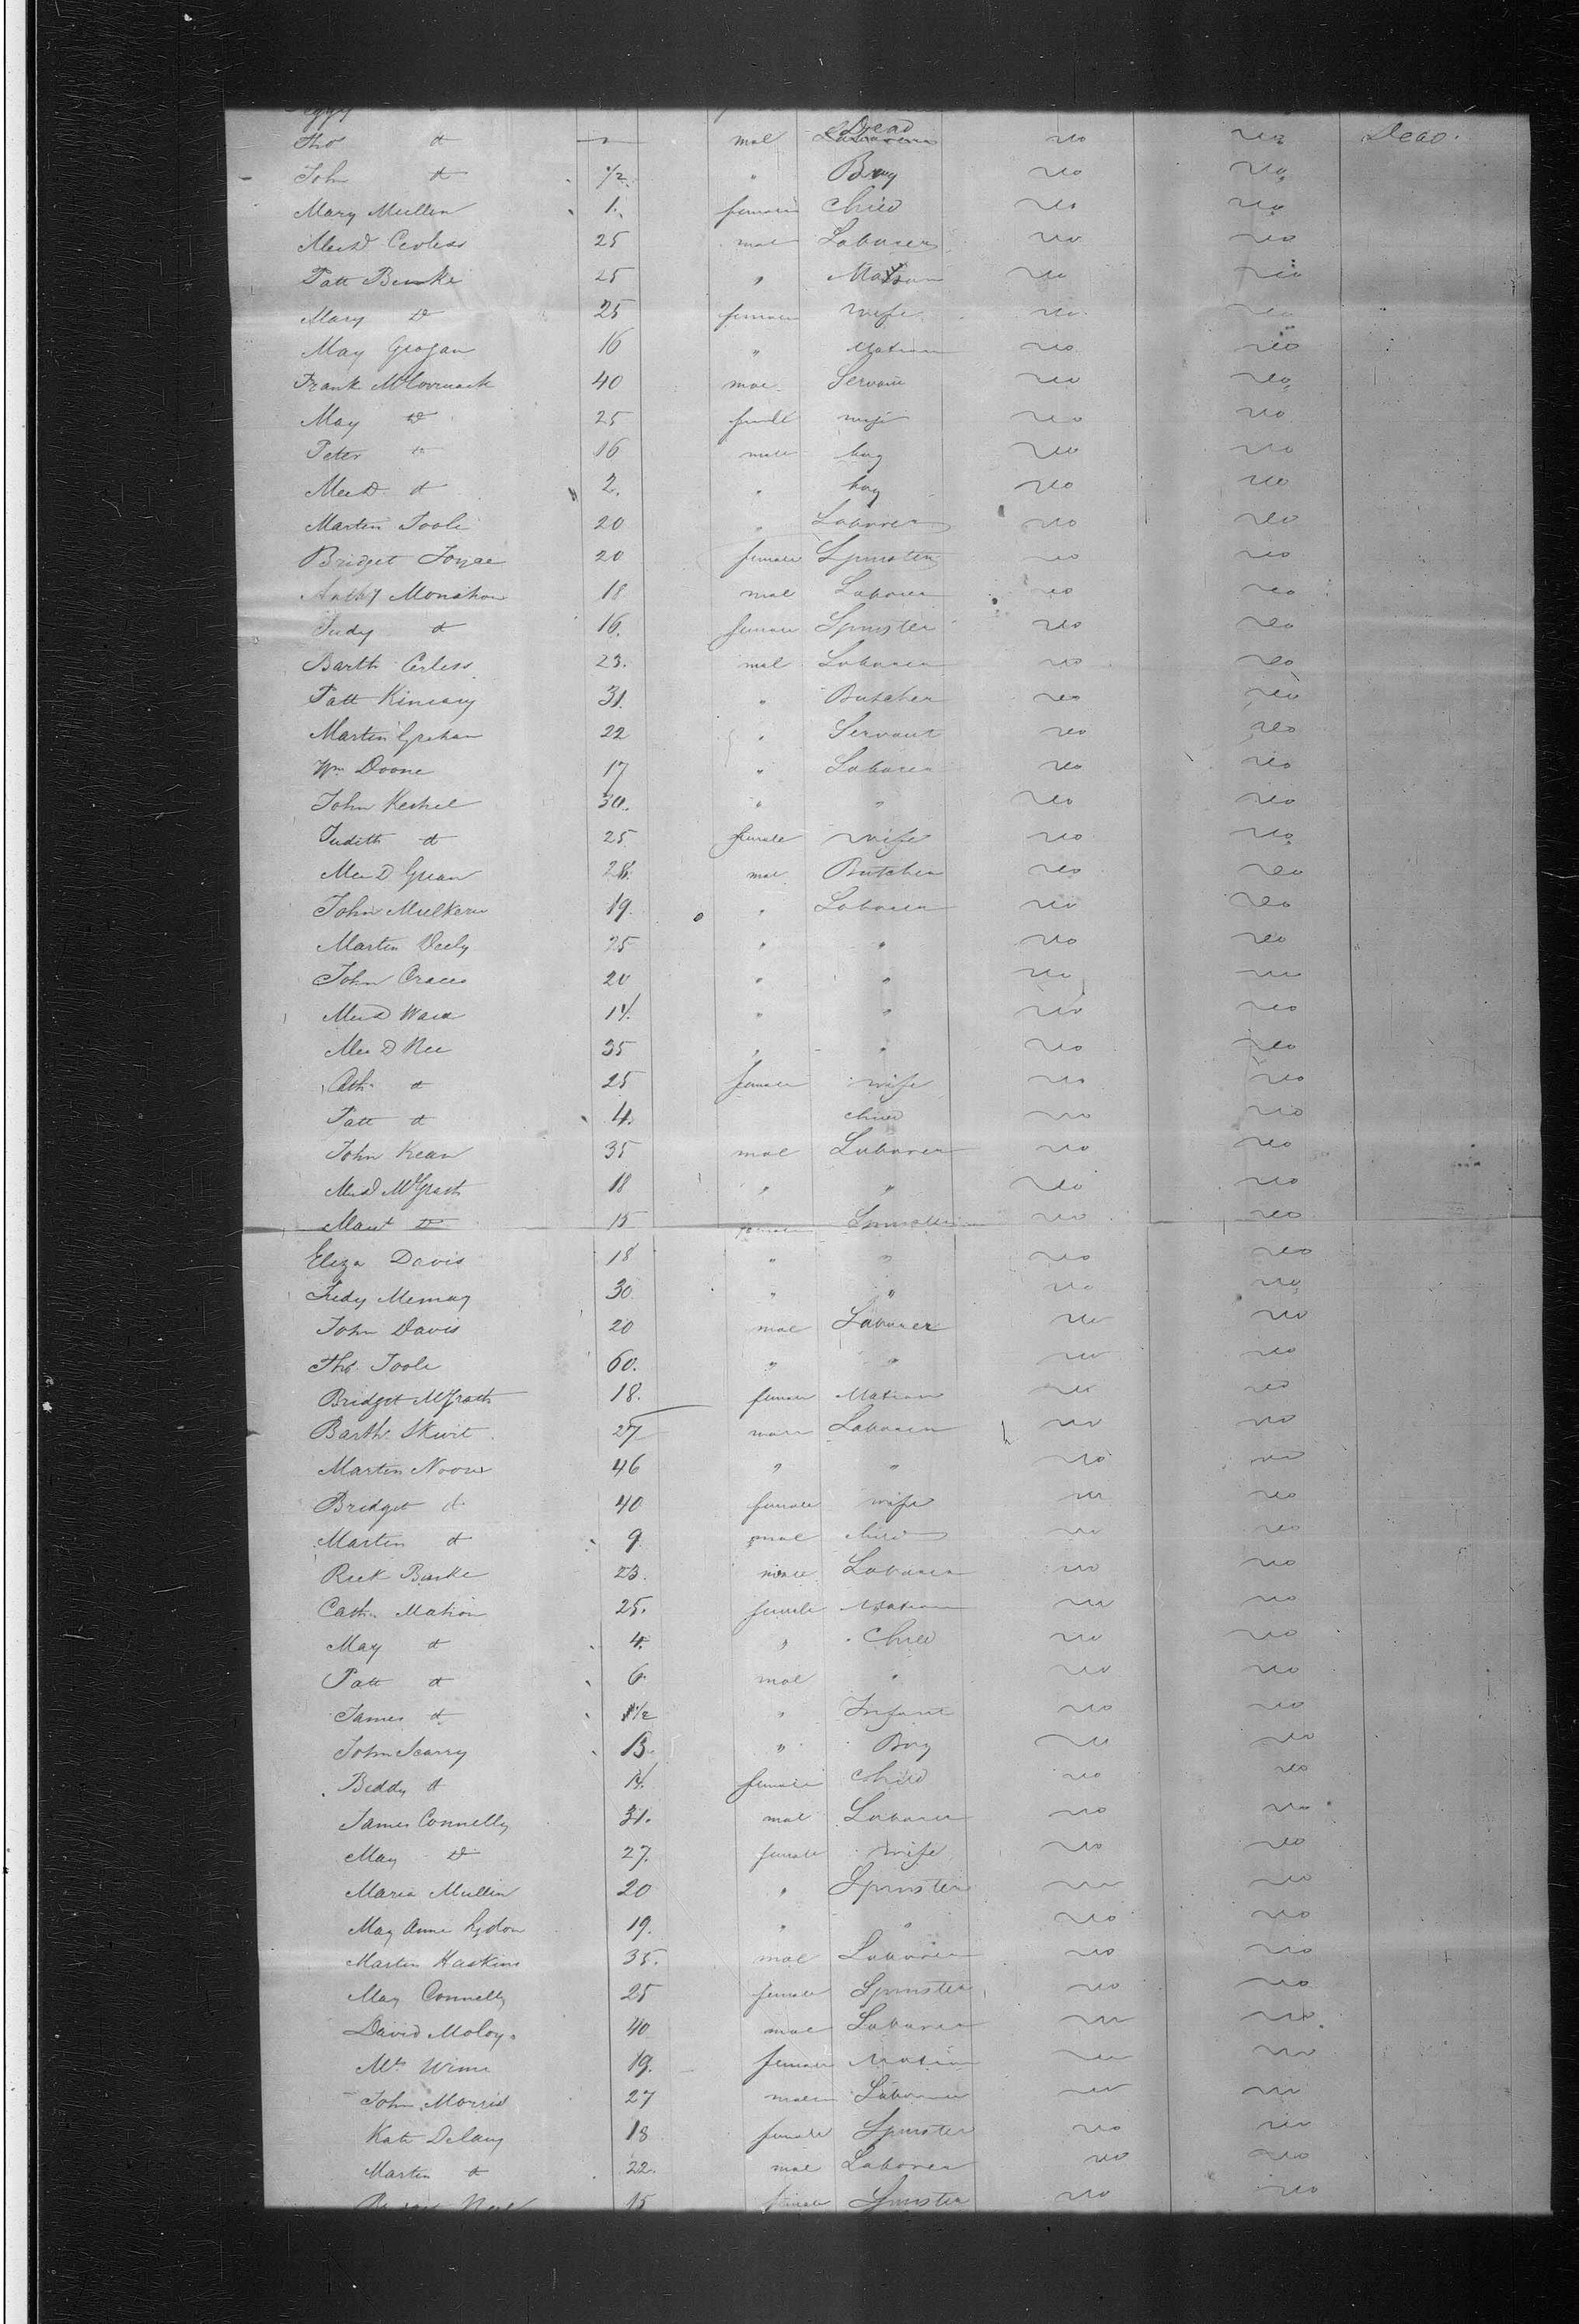 Peggy
Tho do mal Dead no no Dead.
John do 1/2 " Boy no no
Mary Mullen 1. female Child no no
Mich Corless 25 mal Laborer no no
Patt Burke 25 " Mason no no
Mary do 25 female wife no no
May Grogan 16 " Matron no no
Frank McCormack 40 mal Servant no no
May do 25 femll wife no no
Peter do 16 male boy no no
Mich do 2. " boy no no
Martin Toole 20 " Laborer no no
Bridget Joyce 20 female Spinster no no
Anthy Monahon 18 mal Laborer no no
Judy do 16. female Spinster no no
Barth Corless 23. mal Laborer no no
Patt Kineavy 31. " Butcher no no
Martin Graham 22 " Servant no no
Wm Doone 17 " Laborer no no
John Keshel 30. " " no no
Judith do 25 female wife no no
Mich Grean 28. mal Butcher no no
John Mulkern 19. " Laborer no no
Martin Veely 25 " " no no
John Craces 20 " " no no
Mich Ward 14. " " no no
Mich Nee 35 " " no no
Cath do 25 female wife no no
Patt do 4. child no no
John Kean 35 mal Laborer no no
Mich McGrath 18 " " no no
Mart do 15 female Spinster no no
Eliza Davis 18 " " no no
Judy Memay 30 " " no no
John Davis 20 mal Laborer no no
Tho Toole 60. " " no no
Bridget McGrath 18. female Matron no no
Barth Skivit 27 male Laborer no no
Martin Noone 46 " " no no
Bridget do 40 female wife no no
Martin do 9 mal child no no
Rick Burke 23. male Laborer no no
Cath Mahon 25. female Matron no no
May do 4. " Child no no
Patt do 6. mal " no no
James do 1/2 " Infant no no
John Scarry 13. " Boy no no
Biddy do 14. female child no no
James Connelly 31. mal Laborer no no
May do 27. female wife no no
Maria Mullin 20 " Spinster no no
May Anne Lydon 19. " " no no
Martin Haskins 35. mal Laborer no no
May Connelly 25 female Spinster no no
David Moloy 40 mal Laborer no no
Mts Winn 19. female Matron no no
John Morris 27 male Laborer no no
Kate Delany 18 female Spinster no no
Martin do 22. mal Laborer no no
15 female Spinster no no